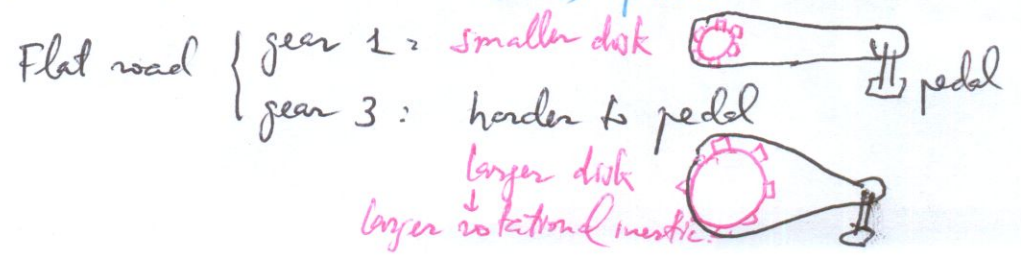 Flat road { gear 1: smaller disk
pedal
gear 3: harder to pedal
larger disk
↓
larger rotational inertia.